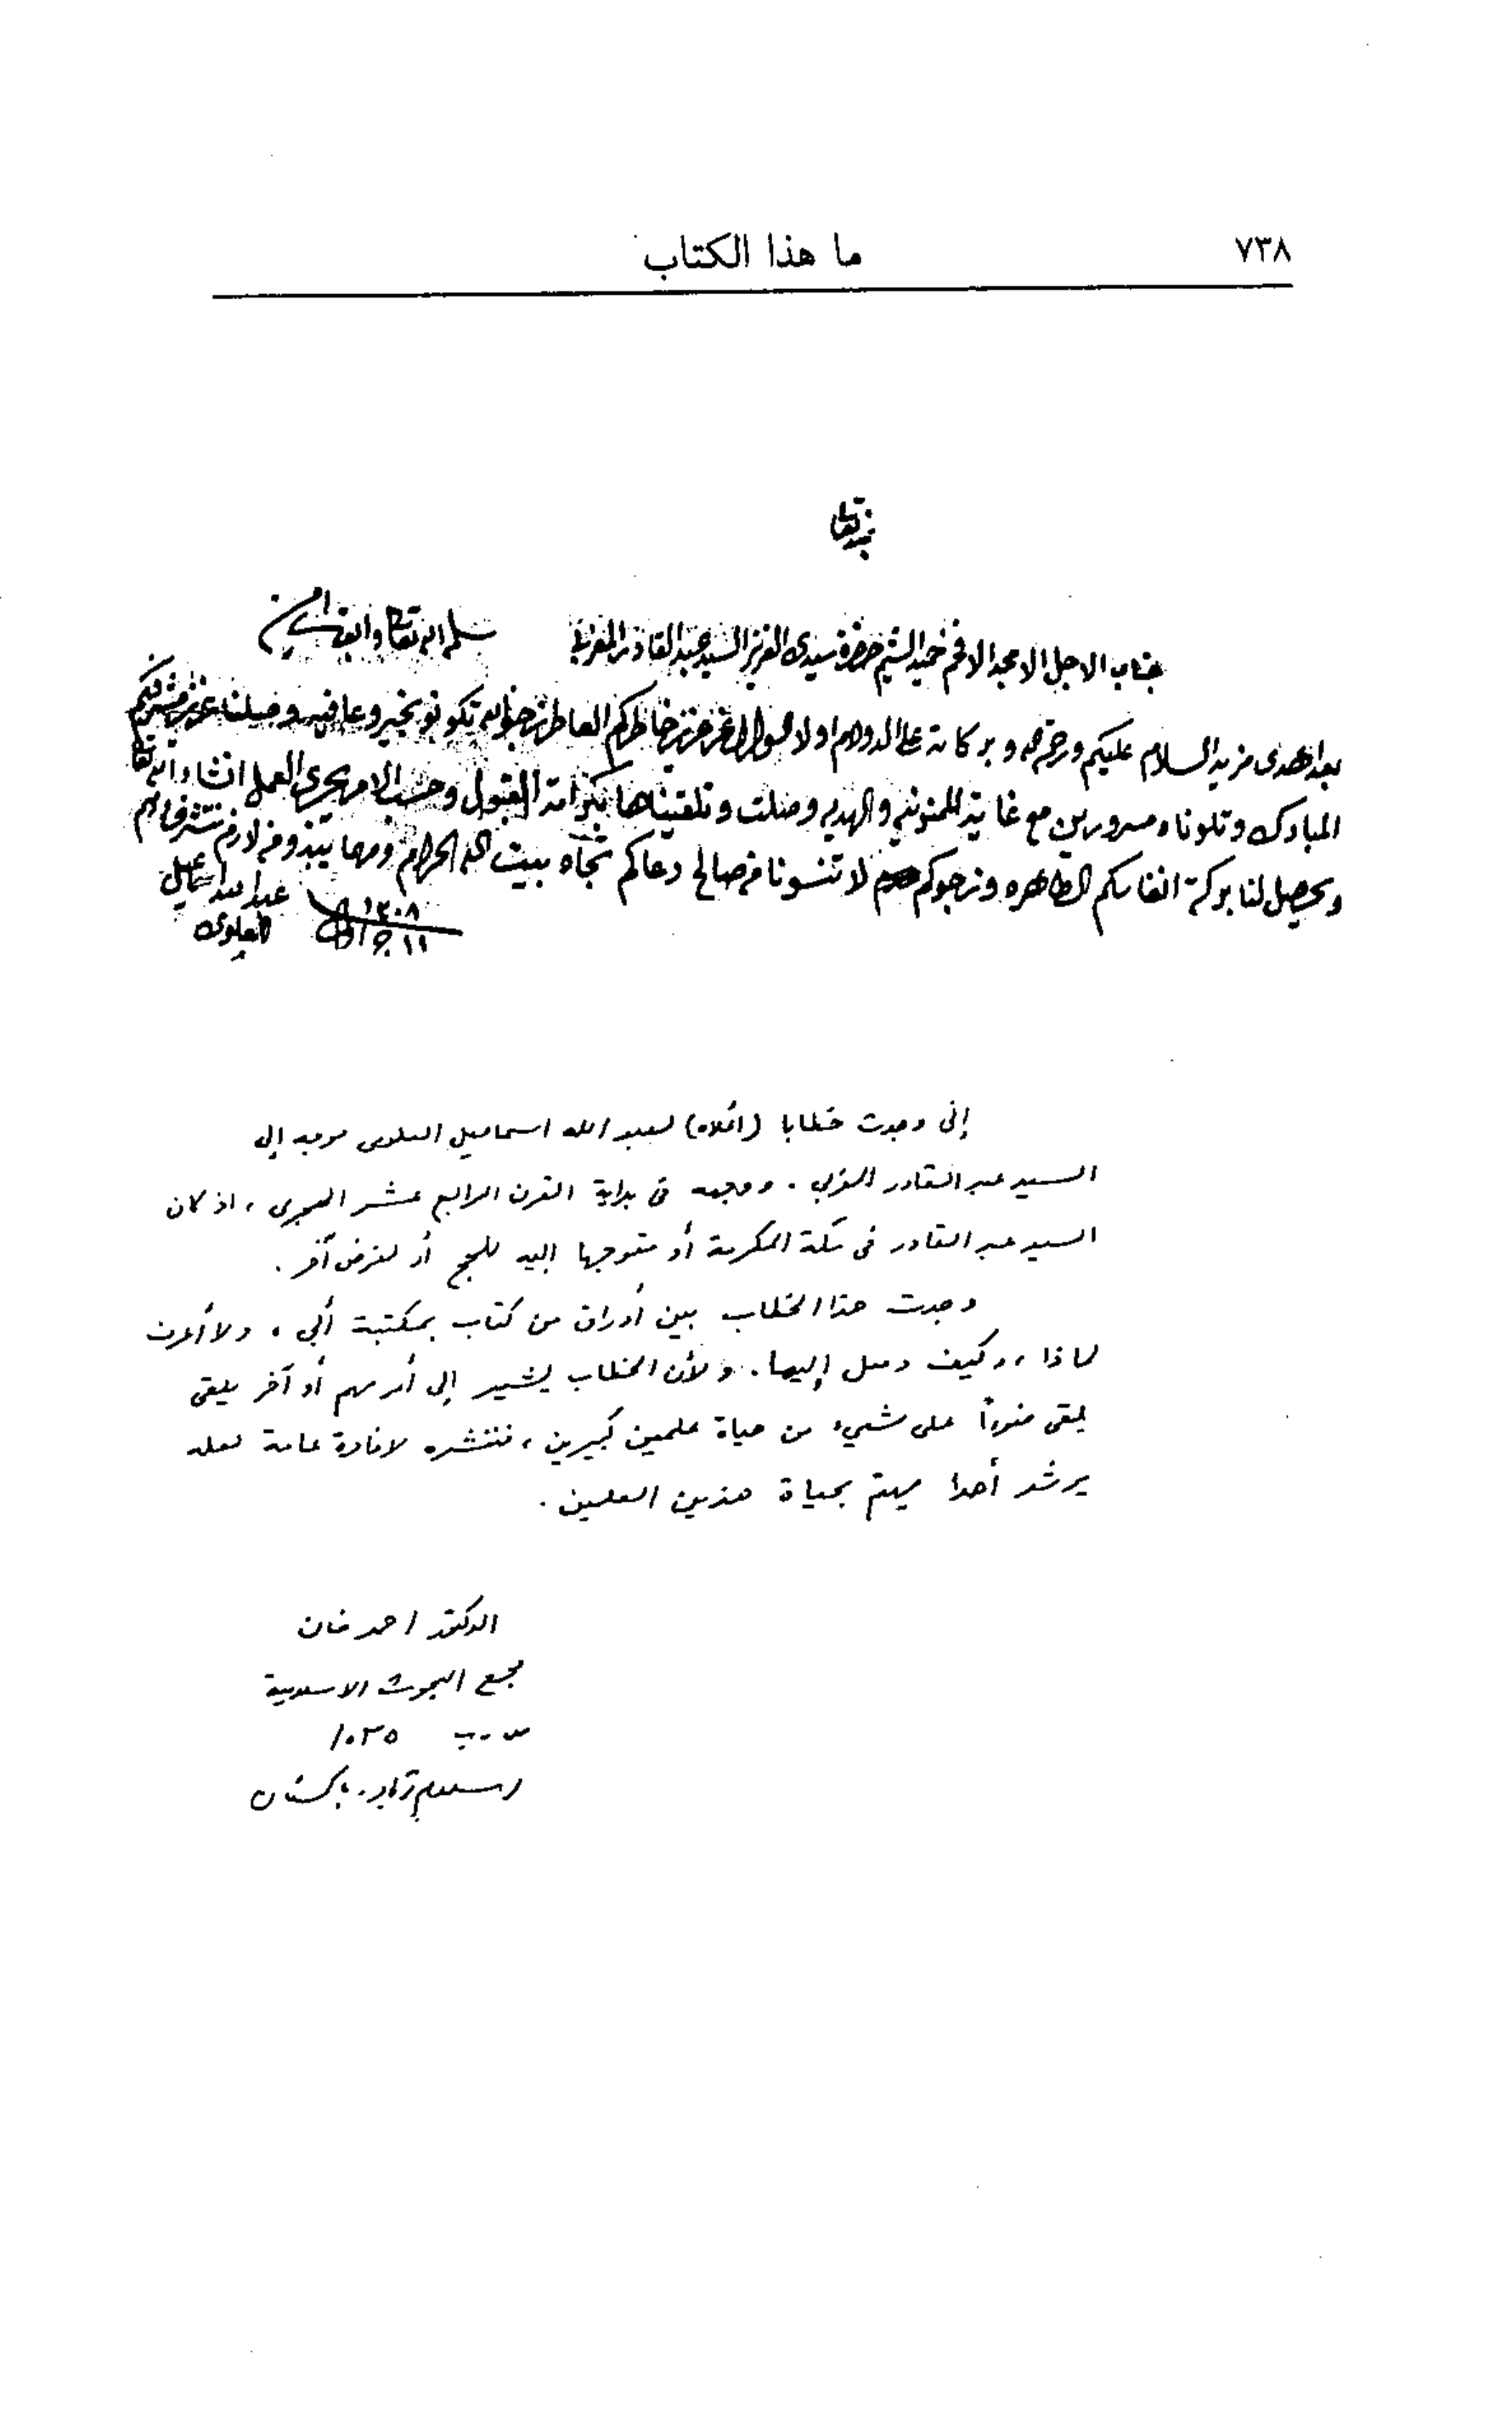 ٧٣٨
ما هذا الكتاب
جناب الاجل الامجد الافخم حميد الشيم حضرة سيدي العزيز السيد عبد القادر المغربي سلمه الله تعالى وابقاه امين
بعد اهدى مزيد السلام عليكم ورحمة الله وبركاته على الدوام اولا السوال عن عزيز خاطركم العاطر نرجوا الله تكونو بخير وعافيه وصلنا عزيز مشرفكم
المبارك وتلوناه مسرورين مع غاية الممنونيه والهديه وصلت وتلقيناها بكرامة القبول وحسب الامر يجري العمل انشاء الله تعالى
ويحصل لنا بركة انفاسكم الطاهره ونرجوكم لا تنسونا من صالح دعاكم تجاه بيت الله الحرام ومهما يبدو من لازم نتشرف
عبد الله اسماعيل
العلوى
١٣٠٨
١١
إنى وجدت خطابا (أعلاه) لعبد الله اسماعيل العلوى موجه إلى
السيد عبد القادر المغربي . ووجهه فى بداية القرن الرابع عشر الهجرى ، اذ كان
السيد عبد القادر فى مكة المكرمة أو متوجها إليه للحج أو لغرض آخر .
وجدت هذا الخطاب بين أوراق من كتاب بمكتبة أبى ، ولا أعرف
لماذا ، وكيف وصل إليها . ولأن الخطاب يشير إلى أمر مهم أو آخر يلقى
يلقى ضوءاً على شيء من حياة علمين كبيرين ، فننشره لافادة عامة لعله
يرشد أحدا يهتم بحياة هذين العلمين .
الدكتور احمد خان
مجمع البحوث الاسلامية
ص . ب ١٠٣٥
اسلام آباد . باكستان